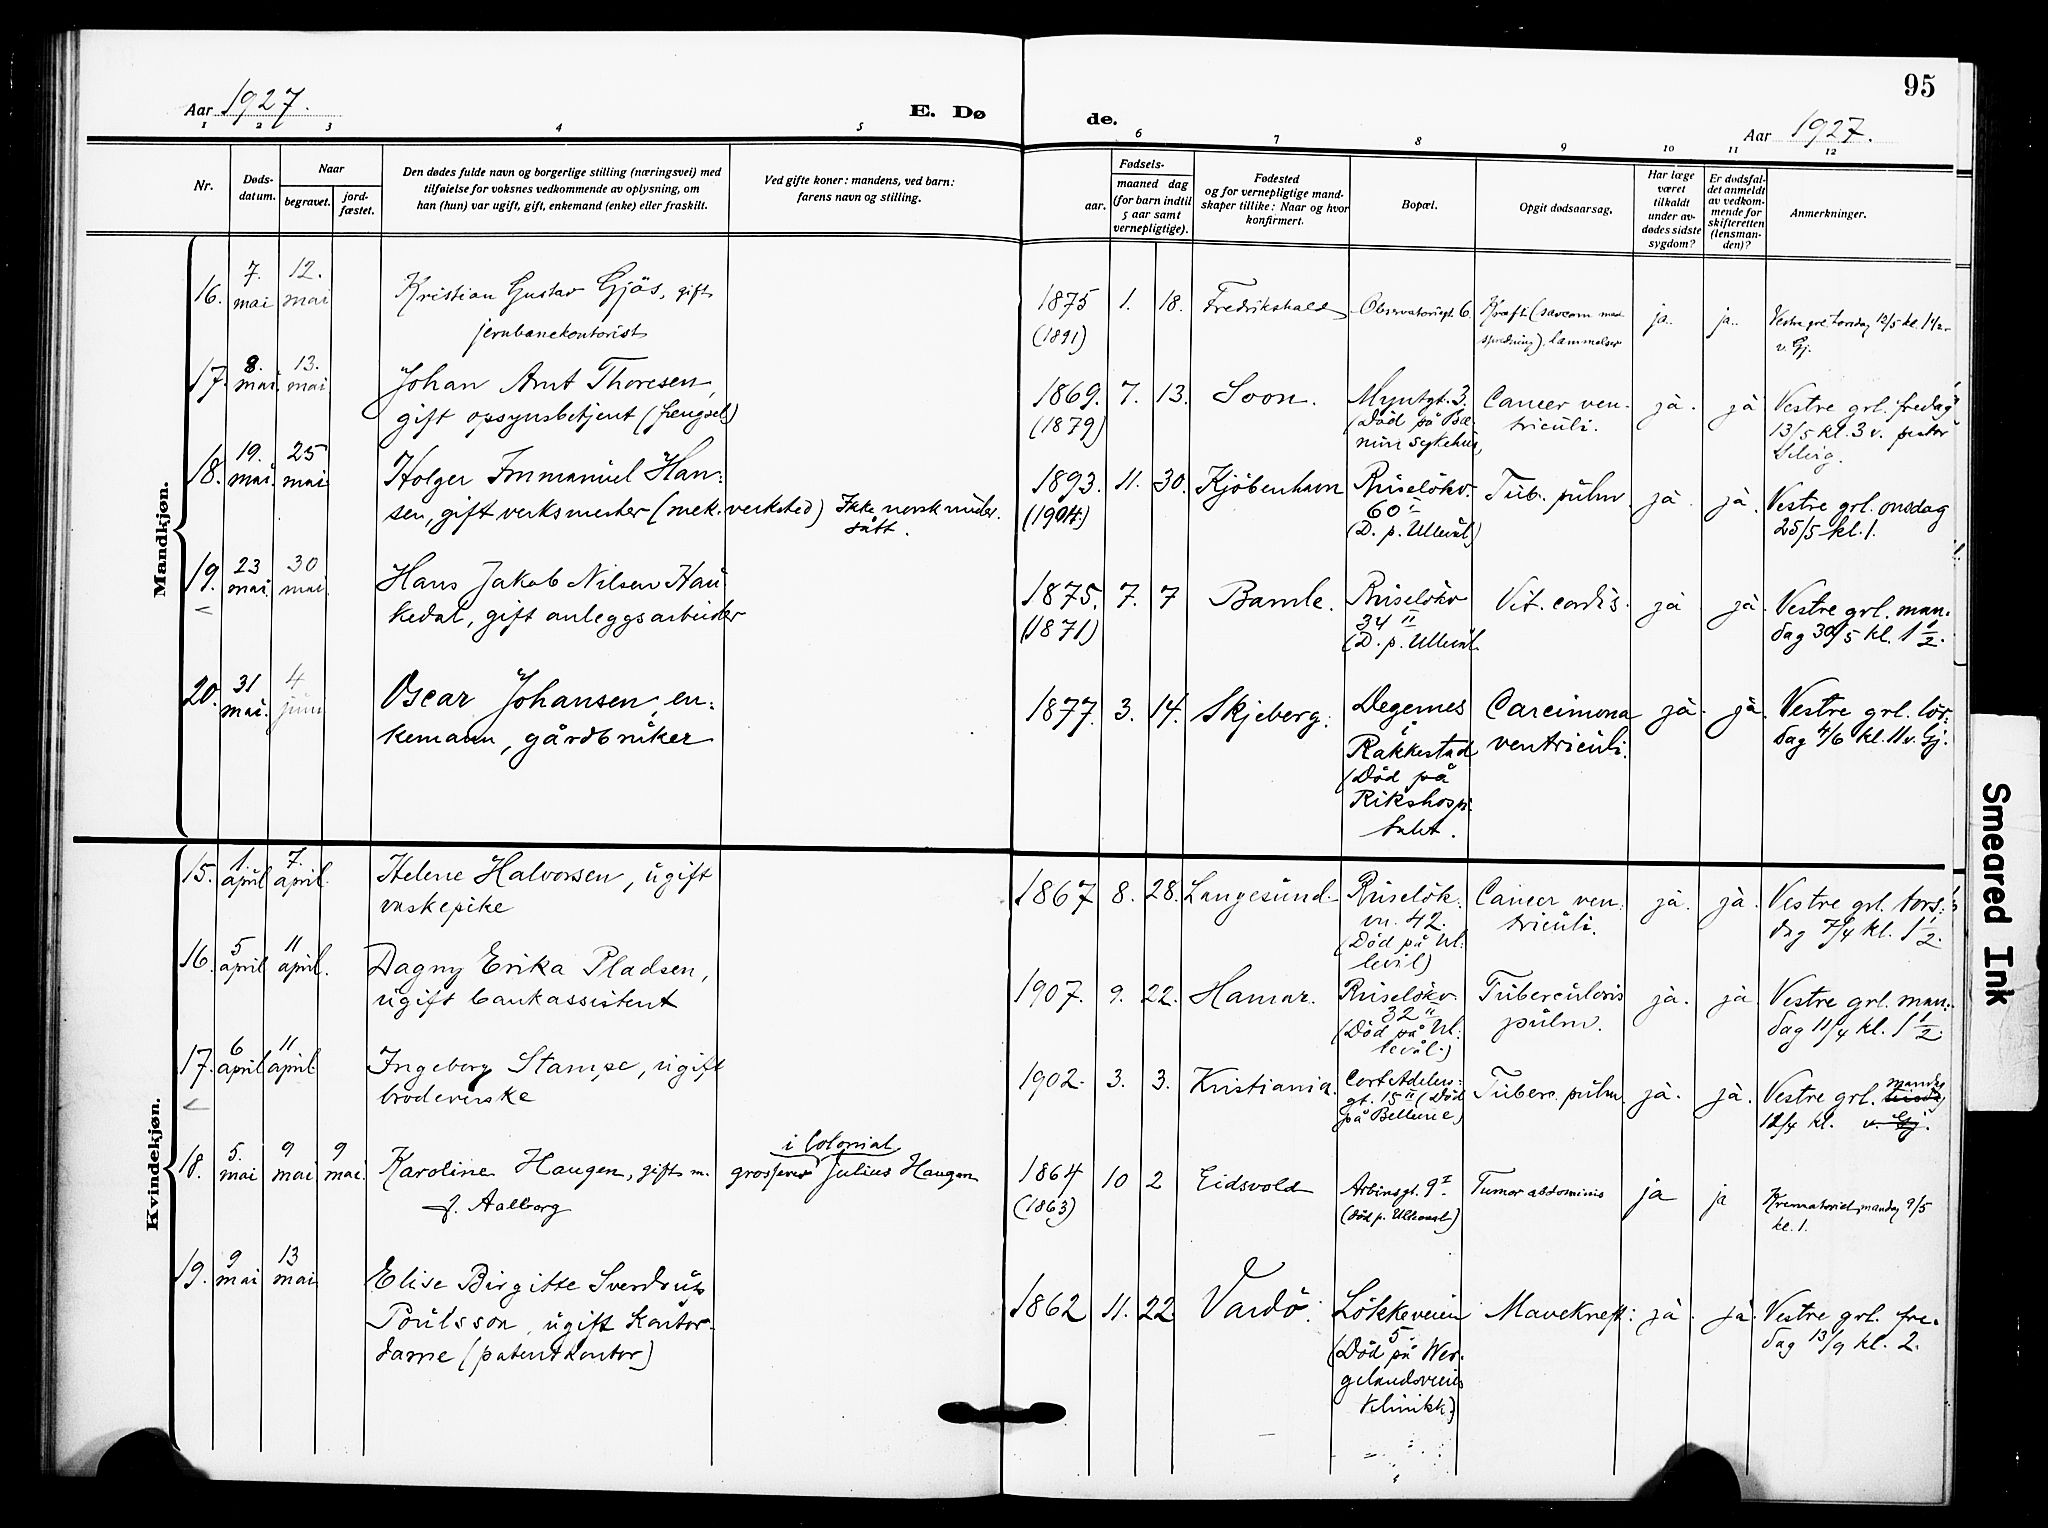 95
Aar 1927.
E. Dø
de.
Aar 1927.
1 2 3 4 5 6 7 8 9 10 11 12
Nr.
Døds-
datum.
Naar
begravet.
jord-
fæstet.
Den dødes fulde navn og borgerlige stilling (næringsvei) med
tilføielse for voksnes vedkommende av oplysning, om
han (hun) var ugift, gift, enkemand (enke) eller fraskilt.
Ved gifte koner: mandens, ved barn:
farens navn og stilling.
Fødsels-
aar.
maaned dag
(for barn indtil
5 aar samt
vernepligtige).
Fødested
og for vernepligtige mand-
skaper tillike: Naar og hvor
konfirmert.
Bopæl.
Opgit dødsaarsag.
Har læge
været
tilkaldt
under av-
dødes sidste
sygdom?
Er dødsfal-
det anmeldt
av vedkom-
mende for
skifteretten
(lensman-
den)?
Anmerkninger.
Mandkjøn.
16. 7. mai 12. mai
Kristian Gustav Gjös, gift
jernbanekontorist
1875 1. 18. Fredrikshald Observatoriegt. 6
(1891)
Kræft (sarcom med
spredning). lammelser
ja. ja.
Vestre grl. torsdag 12/5 kl. 1 1/2
v. Gj.
17. 8. mai 13. mai
Johan Arnt Thoresen,
gift opsynsbetjent (fengsel)
1869. 7. 13. Soon.
(1879)
Myntgt. 3.
(Död på Bæ-
rum sykehus,
Cancer ven-
triculi.
ja. ja
Vestre grl. fredag
13/5 kl. 3 v. pastor
18. 19. mai 25 mai
Holger Immanuel Han-
sen, gift verksmester (mek. verksted) Ikke norsk under-
sått.
1893. 11. 30. Kjöbenhavn
(1904)
Ruselökv.
60 II
(D. p. Ullevål)
Tub. pulm. ja. ja.
Vestre grl. onsdag
25/5 kl. 1.
19. 23 mai. 30 mai.
Hans Jakob Nilsen Hau-
kedal, gift anleggsarbeider
1875. 7. 7 Bamle.
(1871)
Ruselökv
34 II
(D. p. Ullevål
Vit. cordis. ja ja.
Vestre grl. man-
dag 30/5 kl. 1 1/2.
20. 31 mai. 4 juni
Oscar Johansen, en-
kemann, gårdbruker
1877. 3. 14. Skjeberg.
Degernes
Rakkestad
(Död på
Rikshospi-
talet.
Carcimona
ventriculi.
ja. ja.
Vestre grl. lör-
dag 4/6 kl. 11 v. Gj.
Kvindekjøn.
15. 1. april 7. april.
Helene Halvorsen, ugift
vaskepike
1867 8. 28. Langesund.
Ruselök-
vn. 42.
(Död på Ul-
levål)
Cancer ven-
triculi.
ja. ja.
Vestre grl. tors-
dag 7/4 kl. 1 1/2.
16. 5 april 11 april.
Dagny Erika Pladsen,
ugift bankassistent
1907. 9. 22. Hamar.
Ruselökv.
32 II
(Död på Ul-
levål.)
Tuberculosis
pulm.
ja. ja
Vestre grl. man-
dag 11/4 kl. 1 1/2.
17. 6 april 11 april.
Ingeborg Stampe, ugift
brodererske
1902. 3. 3. Kristiania.
Cort Adelers-
gt. 15 II (Död
på Bellevue)
Tuberc. pulm. ja. ja.
Vestre grl. tirsdag mandag
12/4 kl. v. Gj.
18. 5. mai 9 mai 9 mai.
Karoline Haugen, gift m. grosserer i Colonial Julius Haugen
f. Aalborg
1864 10 2 Eidsvold
(1863)
Arbinsgt. 9 I
(död p. Ullevål)
Tumor abdominis ja ja
Krematoriet mandag 9/5
kl. 1.
19. 9 mai 13 mai
Elise Birgitte Sverdrup
Poulsson, ugift kontor-
dame (patentkontor)
1862 11. 22. Vardö.
Lökkeveien
5
(Död på Wer-
gelandsveiens
klinikk.)
Mavekreft. ja. ja.
Vestre grl. fre-
dag 13/9 kl. 2.
Smeared Ink